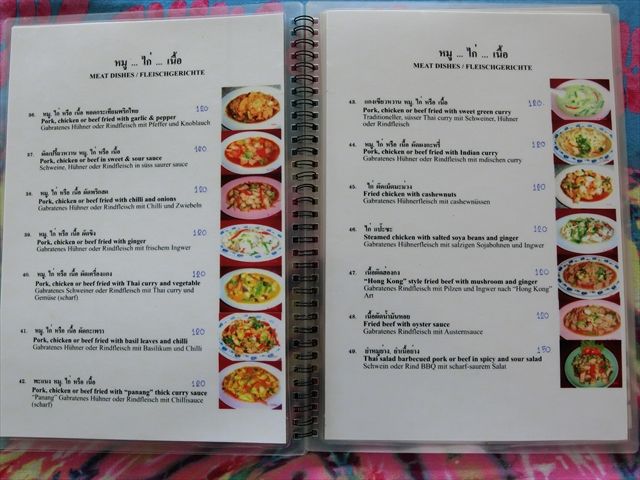 หมู ... ไก่ ... เนื้อ
MEAT DISHES / FLEISCHGERICHTE
36. หมู, ไก่ หรือ เนื้อ ทอดกระเทียมพริกไทย 120
Pork, chicken or beef fried with garlic & pepper
Gabratenes Hühner oder Rindfleisch mit Pfeffer und Knoblauch
37. ผัดเปรี้ยวหวาน หมู, ไก่ หรือ เนื้อ 120
Pork, chicken or beef in sweet & sour sauce
Schweine, Hühner oder Rindfleisch in süss saurer sauce
38. หมู, ไก่ หรือ เนื้อ ผัดพริกสด 120
Pork, chicken or beef fried with chilli and onions
Gabratenes Hühner oder Rindfleisch mit Chilli und Zwiebeln
39. หมู, ไก่ หรือ เนื้อ ผัดขิง 120
Pork, chicken or beef fried with ginger
Gabratenes Hühner oder Rindfleisch mit frischem Ingwer
40. หมู, ไก่ หรือ เนื้อ ผัดเครื่องแกง 120
Pork, chicken or beef fried with Thai curry and vegetable
Gabratenes Schweiner oder Rindfleisch mit Thai curry und
Gemüse (scharf)
41. หมู, ไก่ หรือ เนื้อ ผัดกะเพรา 120
Pork, chicken or beef fried with basil leaves and chilli
Gabratenes Hühner oder Rindfleisch mit Basilikum und Chilli
42. พะแนง หมู, ไก่ หรือ เนื้อ 120
Pork, chicken or beef fried with "panang" thick curry sauce
"Panang" Gabratenes Hühner oder Rindfleisch mit Chillisauce
(scharf)
หมู ... ไก่ ... เนื้อ
MEAT DISHES / FLEISCHGERICHTE
43. แกงเขียวหวาน หมู, ไก่ หรือ เนื้อ 120.
Pork, chicken or beef fried with sweet green curry
Traditioneller, süsser Thai curry mit Schweiner, Hühner
oder Rindfleisch
44. หมู, ไก่ หรือ เนื้อ ผัดผงกะหรี่ 120
Pork, chicken or beef fried with Indian curry
Gabratenes Hühner oder Rindfleisch mit indischen curry
45. ไก่ ผัดเม็ดมะม่วง 120
Fried chicken with cashewnuts
Gabratenes Hühnerfleisch mit cashewnüssen
46. ไก่ แป๊ะซะ 120
Steamed chicken with salted soya beans and ginger
Gabratenes Hühnerfleisch mit salzigen Sojabohnen und Ingwer
47. เนื้อผัดฮ่องกง 120
"Hong Kong" style fried beef with mushroom and ginger
Gabratenes Rindfleisch mit Pilzen und Ingwer nach "Hong Kong"
Art
48. เนื้อผัดน้ำมันหอย 120
Fried beef with oyster sauce
Gabratenes Rindfleisch mit Austernsauce
49. ยำหมูย่าง, ยำเนื้อย่าง 150
Thai salad barbecued pork or beef in spicy and sour salad
Schwein oder Rind BBQ mit scharf-saurem Salat